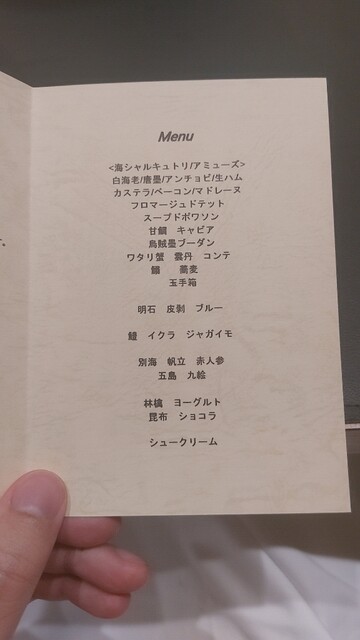 Menu
<海シャルキュトリ/アミューズ>
白海老/唐墨/アンチョビ/生ハム
カステラ/ベーコン/マドレーヌ
フロマージュドテット
スープドポワソン
甘鯛 キャビア
烏賊墨ブーダン
ワタリ蟹 雲丹 コンテ
蕎麦
玉手箱
明石 皮剝 ブルー
イクラ ジャガイモ
別海 帆立 赤人参
五島 九絵
林檎 ヨーグルト
昆布 ショコラ
シュークリーム